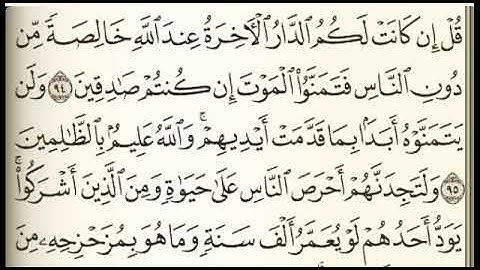 قُلْ إِن كَانَتْ لَكُمُ ٱلدَّارُ ٱلْأَخِرَةُ عِندَ ٱللَّهِ خَالِصَةً مِّن
دُونِ ٱلنَّاسِ فَتَمَنَّوُا۟ ٱلْمَوْتَ إِن كُنتُمْ صَٰدِقِينَ ٩٤ وَلَن
يَتَمَنَّوْهُ أَبَدًۢا بِمَا قَدَّمَتْ أَيْدِيهِمْ ۗ وَٱللَّهُ عَلِيمٌۢ بِٱلظَّٰلِمِينَ
٩٥ وَلَتَجِدَنَّهُمْ أَحْرَصَ ٱلنَّاسِ عَلَىٰ حَيَوٰةٍ وَمِنَ ٱلَّذِينَ أَشْرَكُوا۟ ۚ
يَوَدُّ أَحَدُهُمْ لَوْ يُعَمَّرُ أَلْفَ سَنَةٍ وَمَا هُوَ بِمُزَحْزِحِهِۦ مِنَ